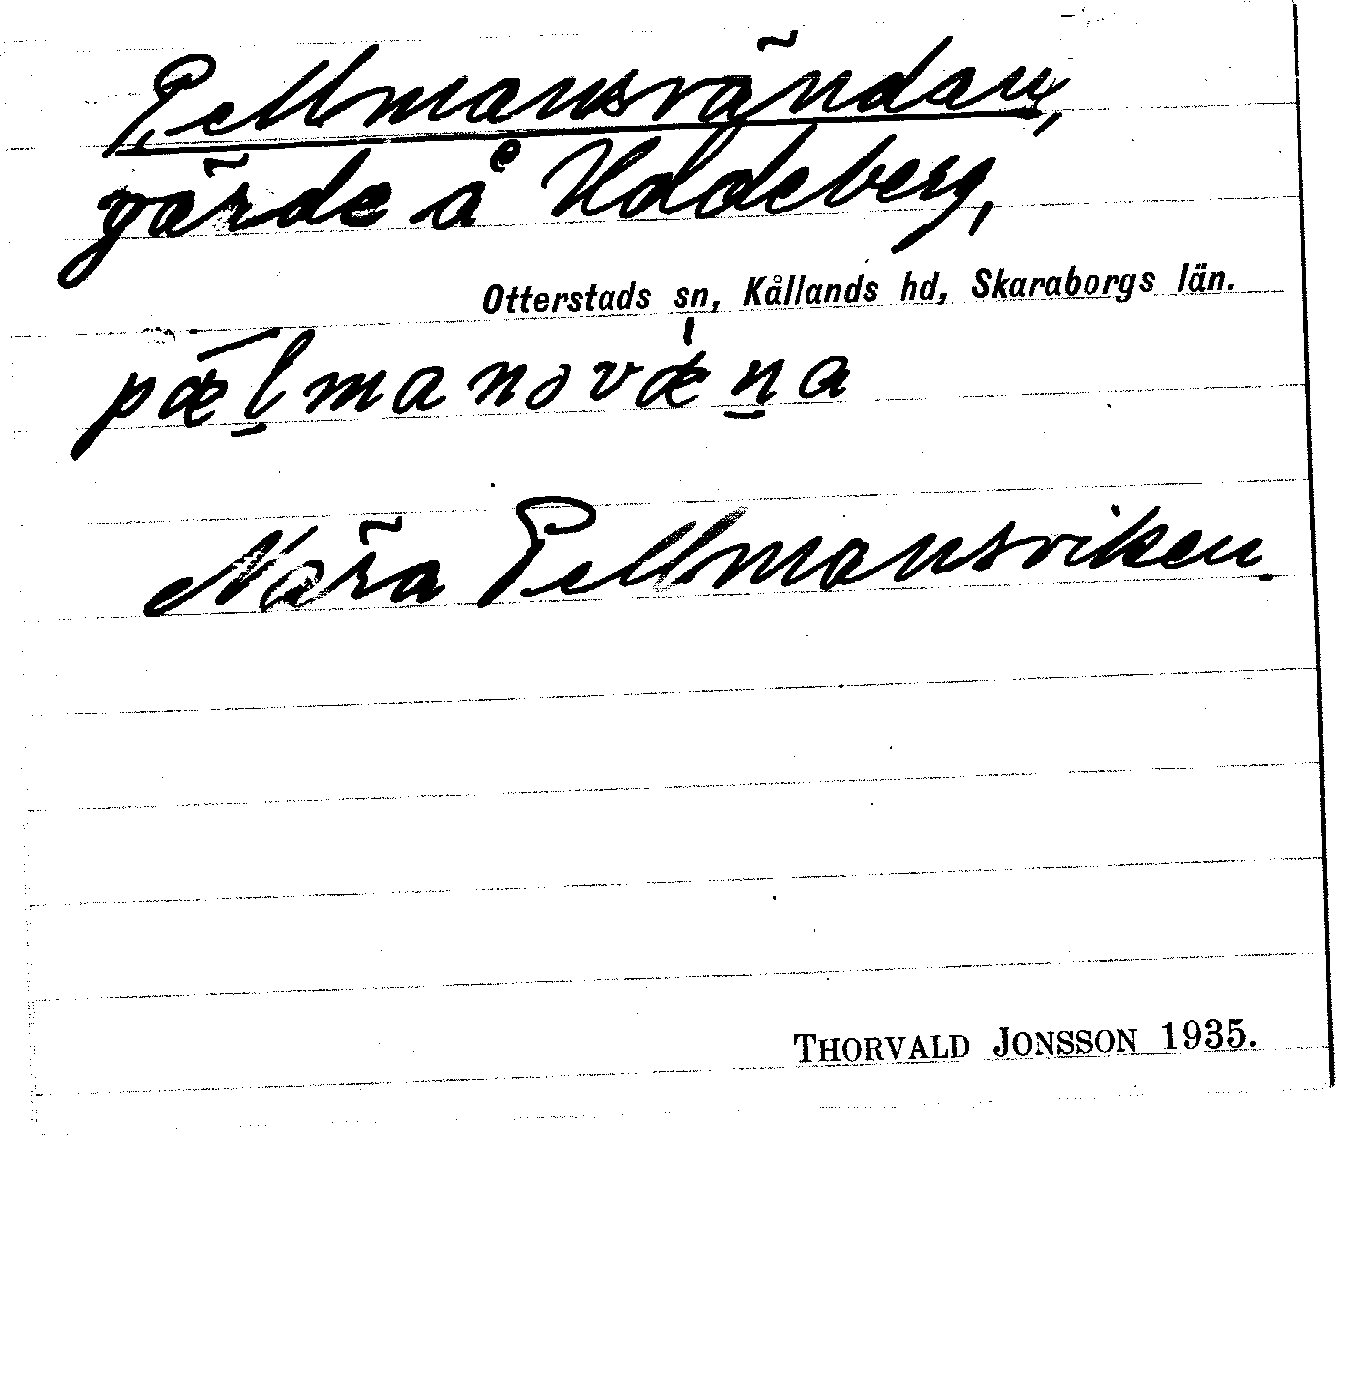 Pellmansvändan,
gärde å Uddeberg,
Otterstads sn, Kållands hd, Skaraborgs län.
pæḻmansvǽṉa
Nära Pellmansviken.
THORVALD JONSSON 1935.